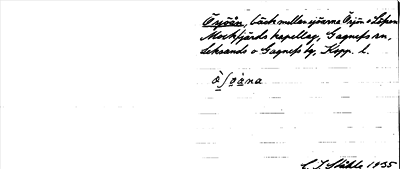 Örjån, bäck mellan sjöarna Örjön o Löpen
Mockfjärds kapellag, Gagnefs sn,
Leksands o Gagnefs tg, Kopp. l.
ö̀ſo̠åna
C. I. Ståhle 1935